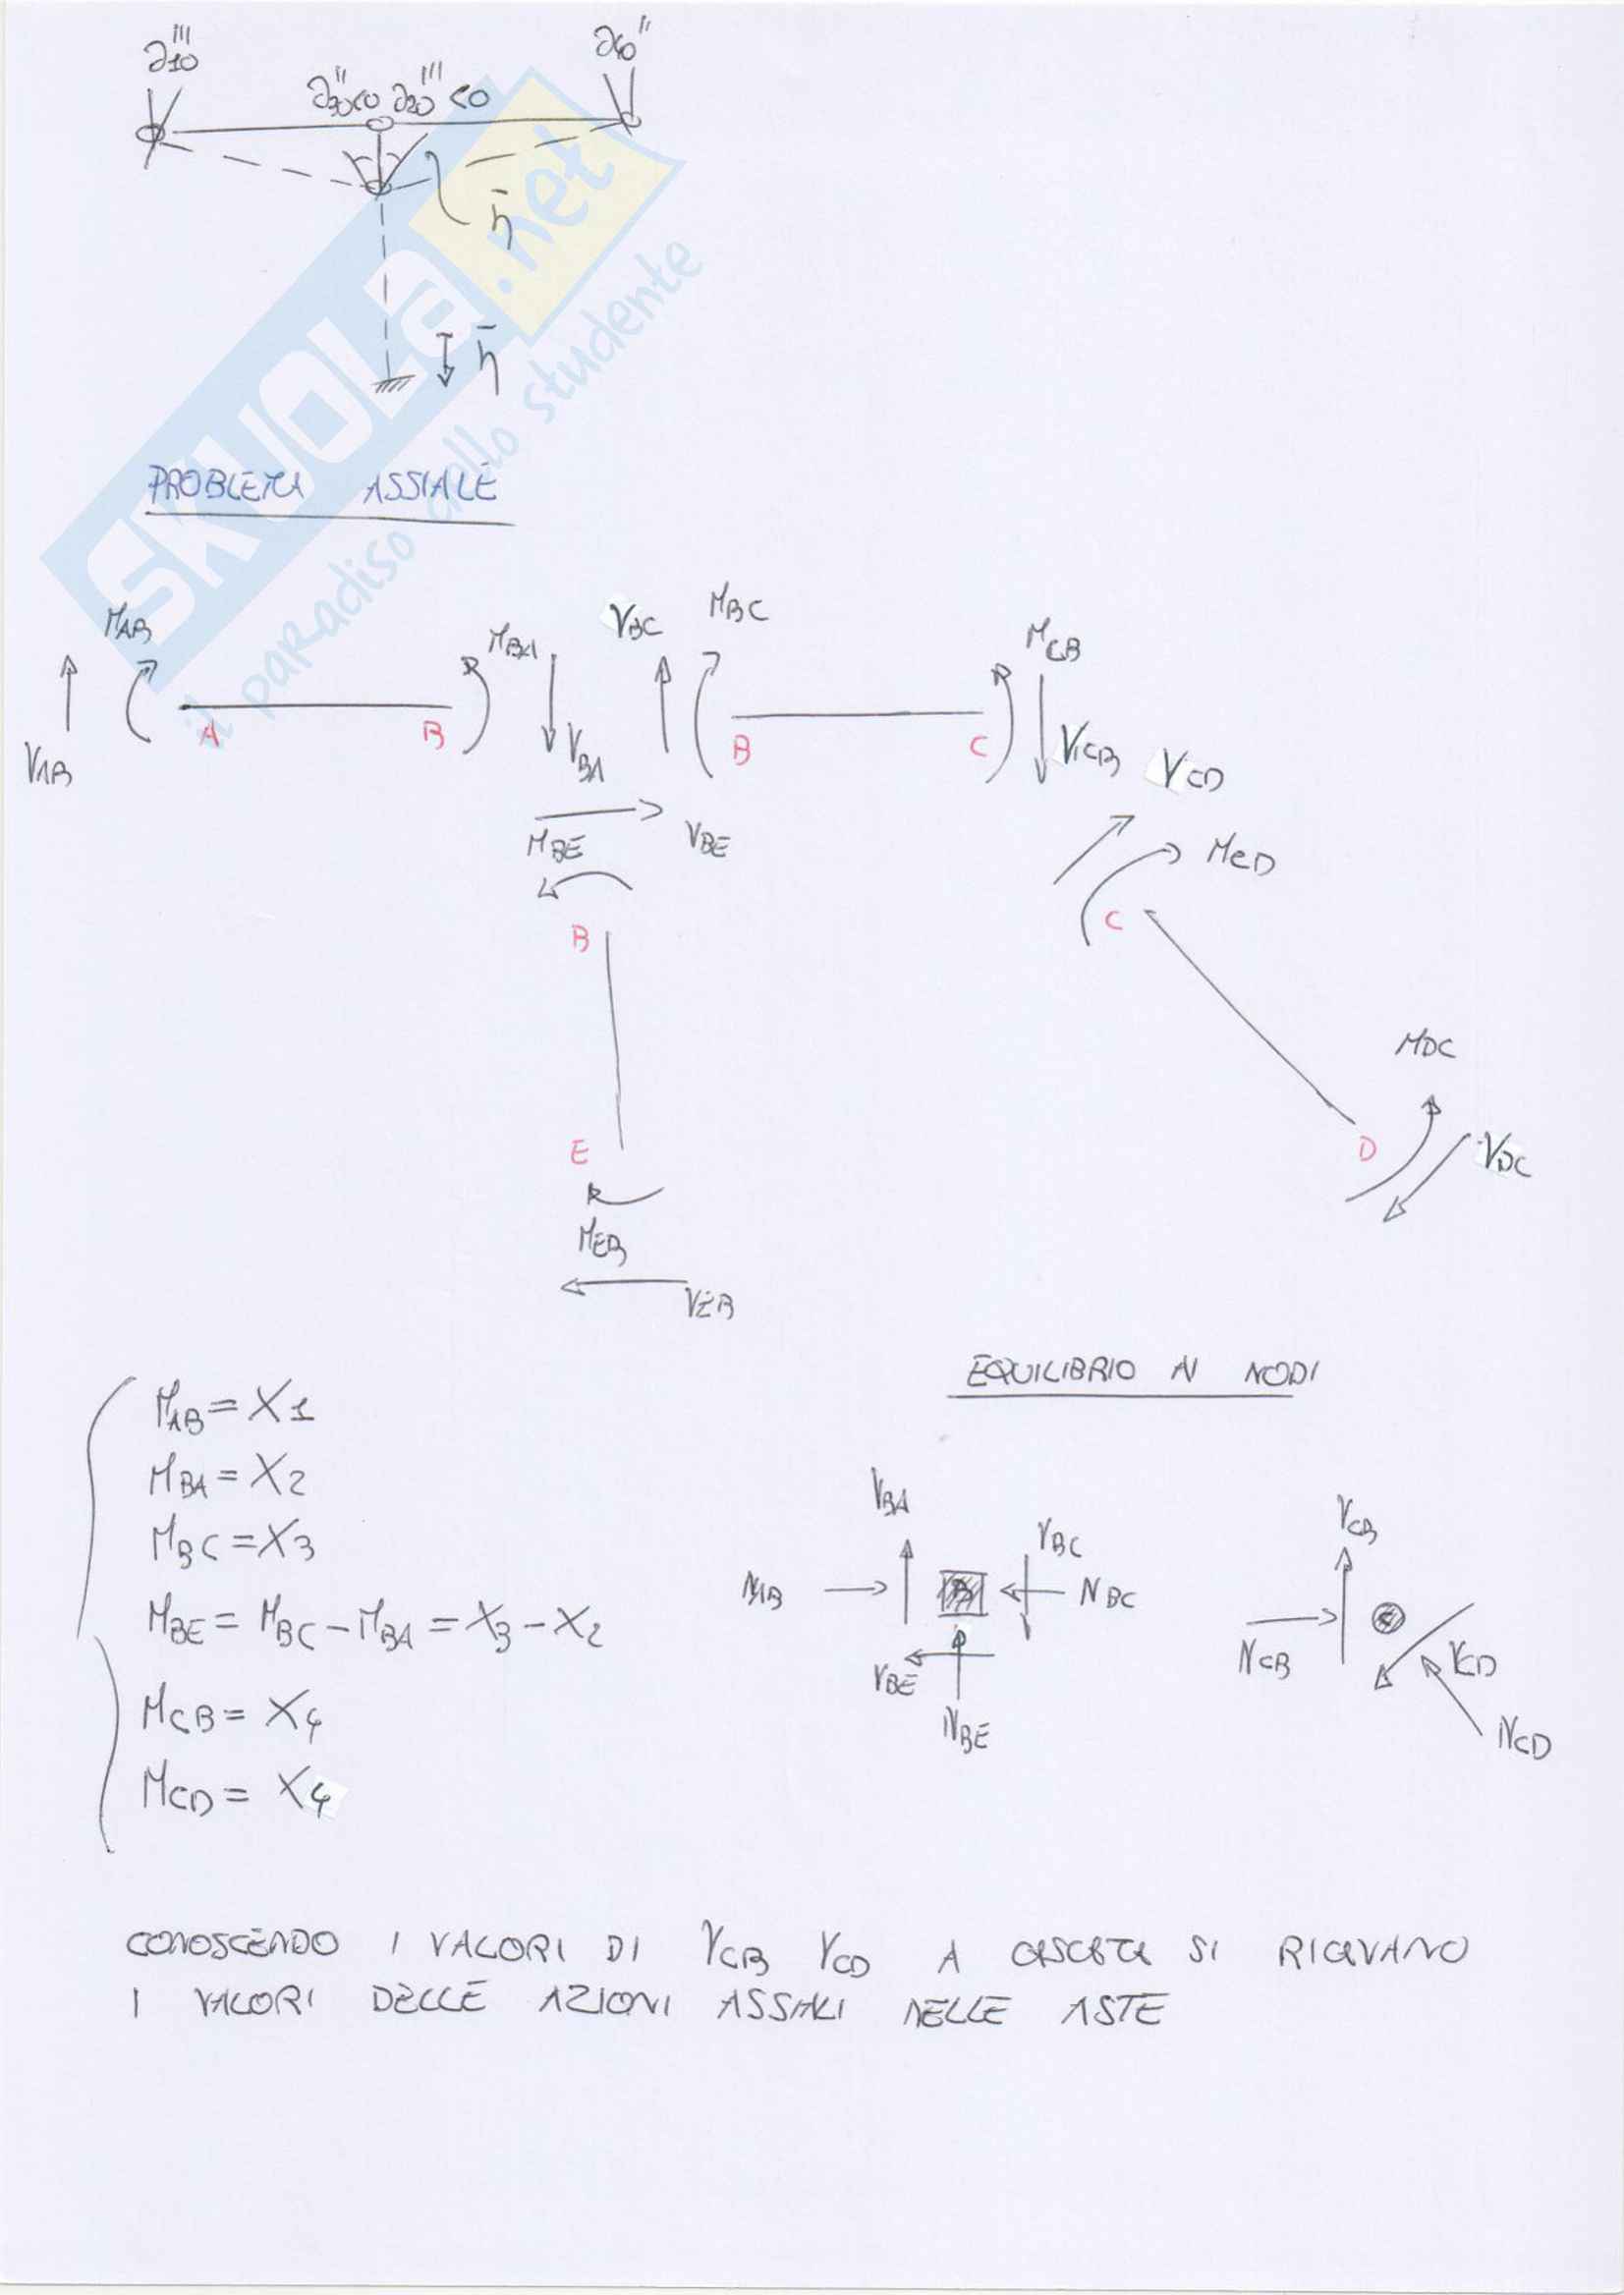 ∂10''' ∂40''
∂30''<0 ∂20'''<0
η̄
η̄
SKUOLA.net
il paradiso dello studente
PROBLEMA ASSIALE
MAB MBA VBC MBC MCB
VAB A B VBA B C VCB VCD
MBE VBE MCD
B C
MDC
E D VDC
MEB
VEB
EQUILIBRIO AI NODI
MAB = X1
MBA = X2
MBC = X3
MBE = MBC - MBA = X3 - X2
MCB = X4
MCD = X4
VBA VBC
NAB B NBC
VBE NBE
VCB
NCB C VCD
NCD
CONOSCENDO I VALORI DI VCB VCD A CASCATA SI RICAVANO
I VALORI DELLE AZIONI ASSIALI NELLE ASTE